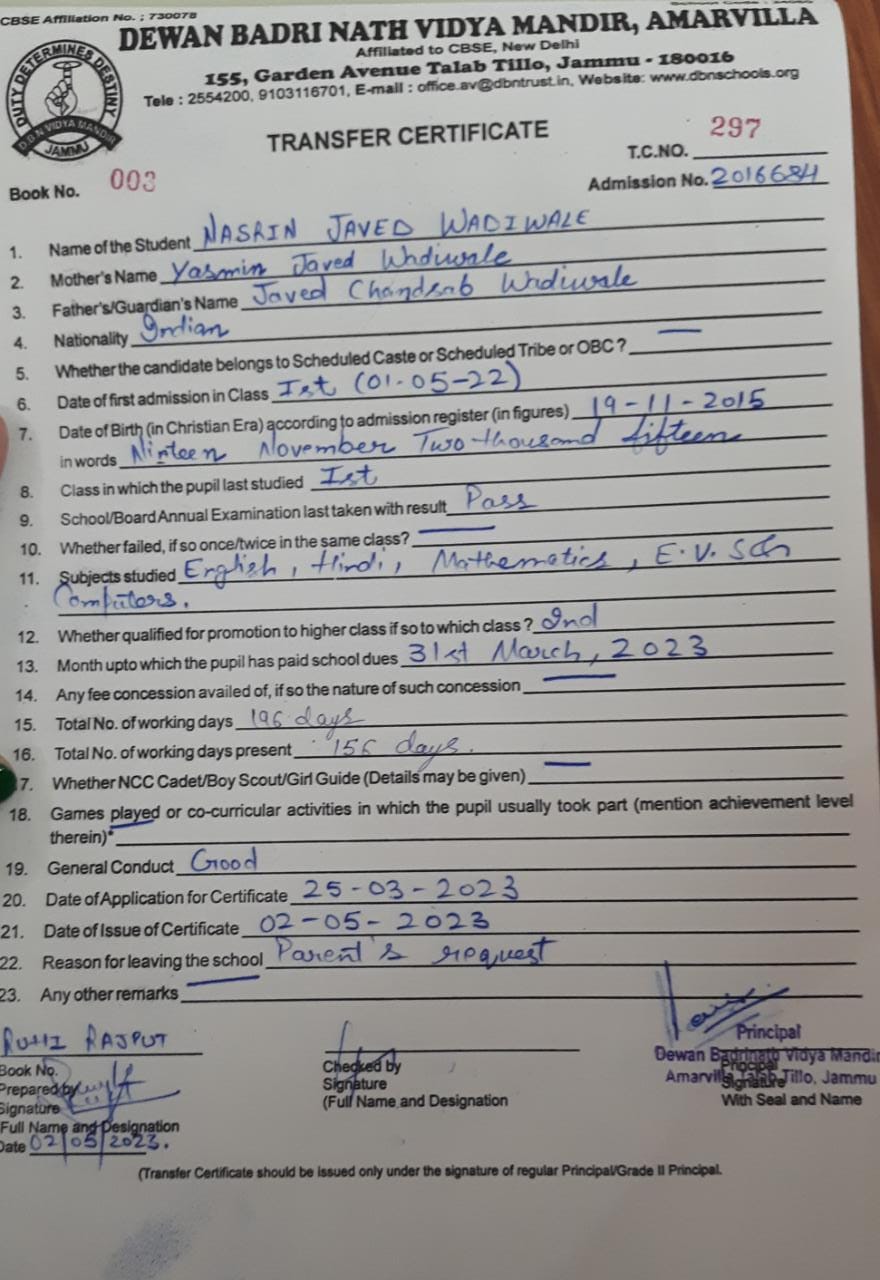 CBSE Affiliation No. : 730078
DEWAN BADRI NATH VIDYA MANDIR, AMARVILLA
Affiliated to CBSE, New Delhi
155, Garden Avenue Talab Tillo, Jammu - 180016
Tele : 2554200, 9103116701, E-mail : office.av@dbntrust.in, Website: www.dbnschools.org
DUTY DETERMINES DESTINY
D.B.N VIDYA MANDIR
JAMMU
TRANSFER CERTIFICATE
T.C.NO. 297
Book No. 003
Admission No. 2016684
1. Name of the Student NASRIN JAVED WADIWALE
2. Mother's Name Yasmin Javed Wadiwale
3. Father's/Guardian's Name Javed Chandsab Wadiwale
4. Nationality Indian
5. Whether the candidate belongs to Scheduled Caste or Scheduled Tribe or OBC ? —
6. Date of first admission in Class Ist (01-05-22)
7. Date of Birth (in Christian Era) according to admission register (in figures) 19-11-2015
in words Ninteen November Two thousand fifteen
8. Class in which the pupil last studied Ist
9. School/Board Annual Examination last taken with result Pass
10. Whether failed, if so once/twice in the same class? —
11. Subjects studied English, Hindi, Mathematics, E.V. Sch
Computers.
12. Whether qualified for promotion to higher class if so to which class ? 2nd
13. Month upto which the pupil has paid school dues 31st March, 2023
14. Any fee concession availed of, if so the nature of such concession —
15. Total No. of working days 196 days
16. Total No. of working days present 156 days.
17. Whether NCC Cadet/Boy Scout/Girl Guide (Details may be given) —
18. Games played or co-curricular activities in which the pupil usually took part (mention achievement level
therein)* —
19. General Conduct Good
20. Date of Application for Certificate 25-03-2023
21. Date of Issue of Certificate 02-05-2023
22. Reason for leaving the school Parent's request
23. Any other remarks —
RUHI RAJPUT
Book No.
Prepared by
Signature
Full Name and Designation
Date 02/05/2023.
Checked by
Signature
(Full Name and Designation
Principal
Dewan Badrinath Vidya Mandir
Principal
Amarvilla Talab Tillo, Jammu
Signature
With Seal and Name
(Transfer Certificate should be issued only under the signature of regular Principal/Grade II Principal.